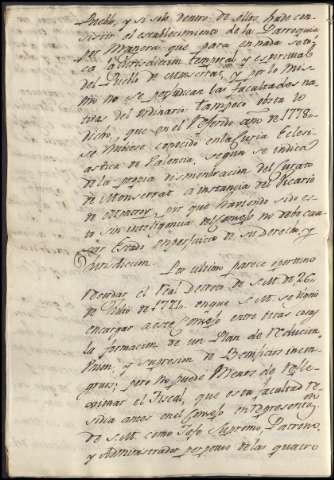 Pueblo, y si solo dentro de ellos, ha de con-
sistir el establecimiento de la Parroquia
por Manera que para en nada se to-
ca la Jurisdiccion temporal y espiritual
del Pueblo de Monserrat, y por lo mis-
mo no se perjudican las facultades na-
tivas del ordinario tampoco obsta lo
dicho, que en el referido año de 1778
se hubiese conocido en la Curia Eclesi-
astica de Valencia, segun se indica
de la propia dismembracion del Curato
de Monserrat a instancia del Vicario
de por que haviendo sido es-
to sin inteligencia del Consejo no debe cau-
sar estado en perjuicio de su derecho, y
Jurisdiccion.
Por ultimo parece oportuno
recordar el Real Decreto de S.M. de 26
de Julio de 1771 en que S.M. se dignó
encargar a este Consejo entre otras cosas
la formacion de un Plan de reducion
Union, y supresion de Beneficios incon-
gruos; pero no puede Menos de refle-
xionar el Fiscal, que esta facultad re-
sidia antes en el Consejo en representacion
de S.M. como Jefe Supremo, Patrono,
y Administrador perpetuo de las quatro